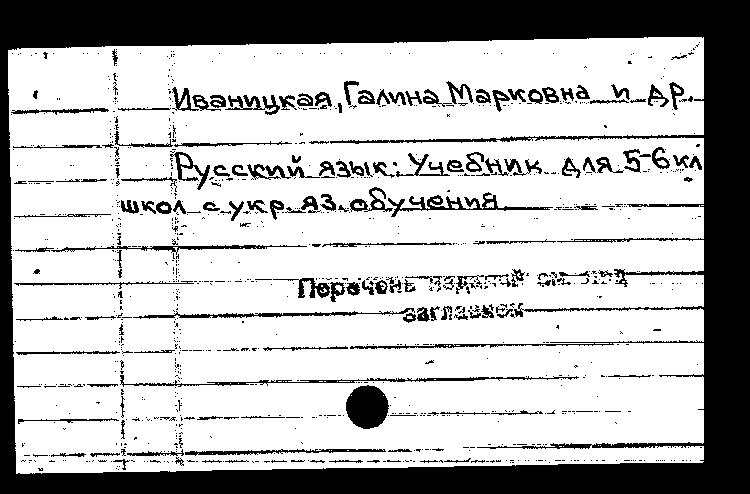 Иваницкая, Галина Марковна и др.
Русский язык: Учебник для 5-6 кл
школ с укр. яз. обучения.
Перечень изданий см. под
заглавием